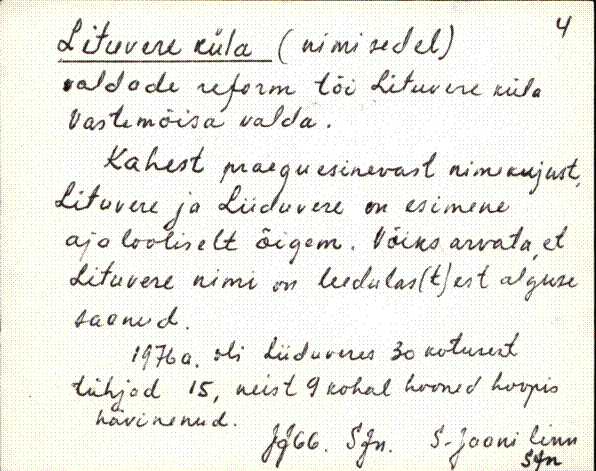 4
Lituvere küla (nimisedel)
valdade reform tõi Lituvere küla
Vastemõisa valda.
Kahest praegu esinevast nimekujust,
Lituvere ja Liiduvere on esimene
ajalooliselt õigem. Võiks arvata, et
Lituvere nimi on leedulas(t)est alguse
saanud.
1976a. oli Liiduveres 30 kotusest
tühjad 15, neist 9 kohal hooned hoopis
hävinenud.
SJn. S-Jaani linn
SJn